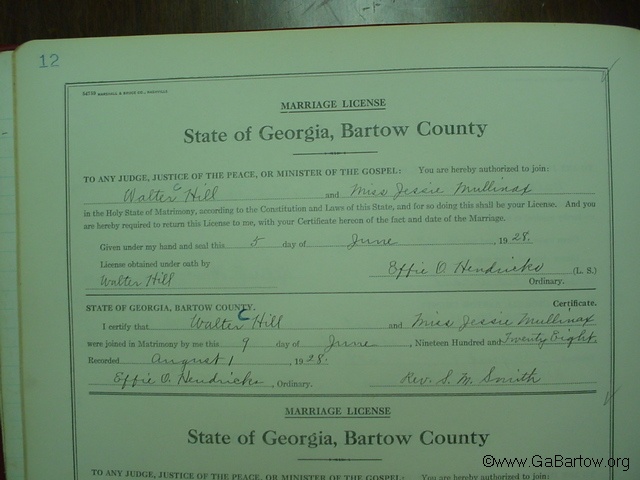 12
54769 MARSHALL & BRUCE CO., NASHVILLE
MARRIAGE LICENSE
State of Georgia, Bartow County
TO ANY JUDGE, JUSTICE OF THE PEACE, OR MINISTER OF THE GOSPEL: You are hereby authorized to join:
Walter C Hill and Miss Jessie Mullinax
in the Holy State of Matrimony, according to the Constitution and Laws of this State, and for so doing this shall be your License. And you
are hereby required to return this License to me, with your Certificate hereon of the fact and date of the Marriage.
Given under my hand and seal this 5 day of June, 1928.
License obtained under oath by Effie O. Hendricks (L. S.)
Walter Hill Ordinary.
STATE OF GEORGIA, BARTOW COUNTY. Certificate.
I certify that Walter C Hill and Miss Jessie Mullinax
were joined in Matrimony by me this 9 day of June, Nineteen Hundred and Twenty Eight.
Recorded August 1, 1928.
Effie O. Hendricks, Ordinary. Rev. S. M. Smith
MARRIAGE LICENSE
State of Georgia, Bartow County
TO ANY JUDGE, JUSTICE OF THE PEACE, OR MINISTER OF THE GOSPEL: You are hereby authorized to join:
©www.GaBartow.org